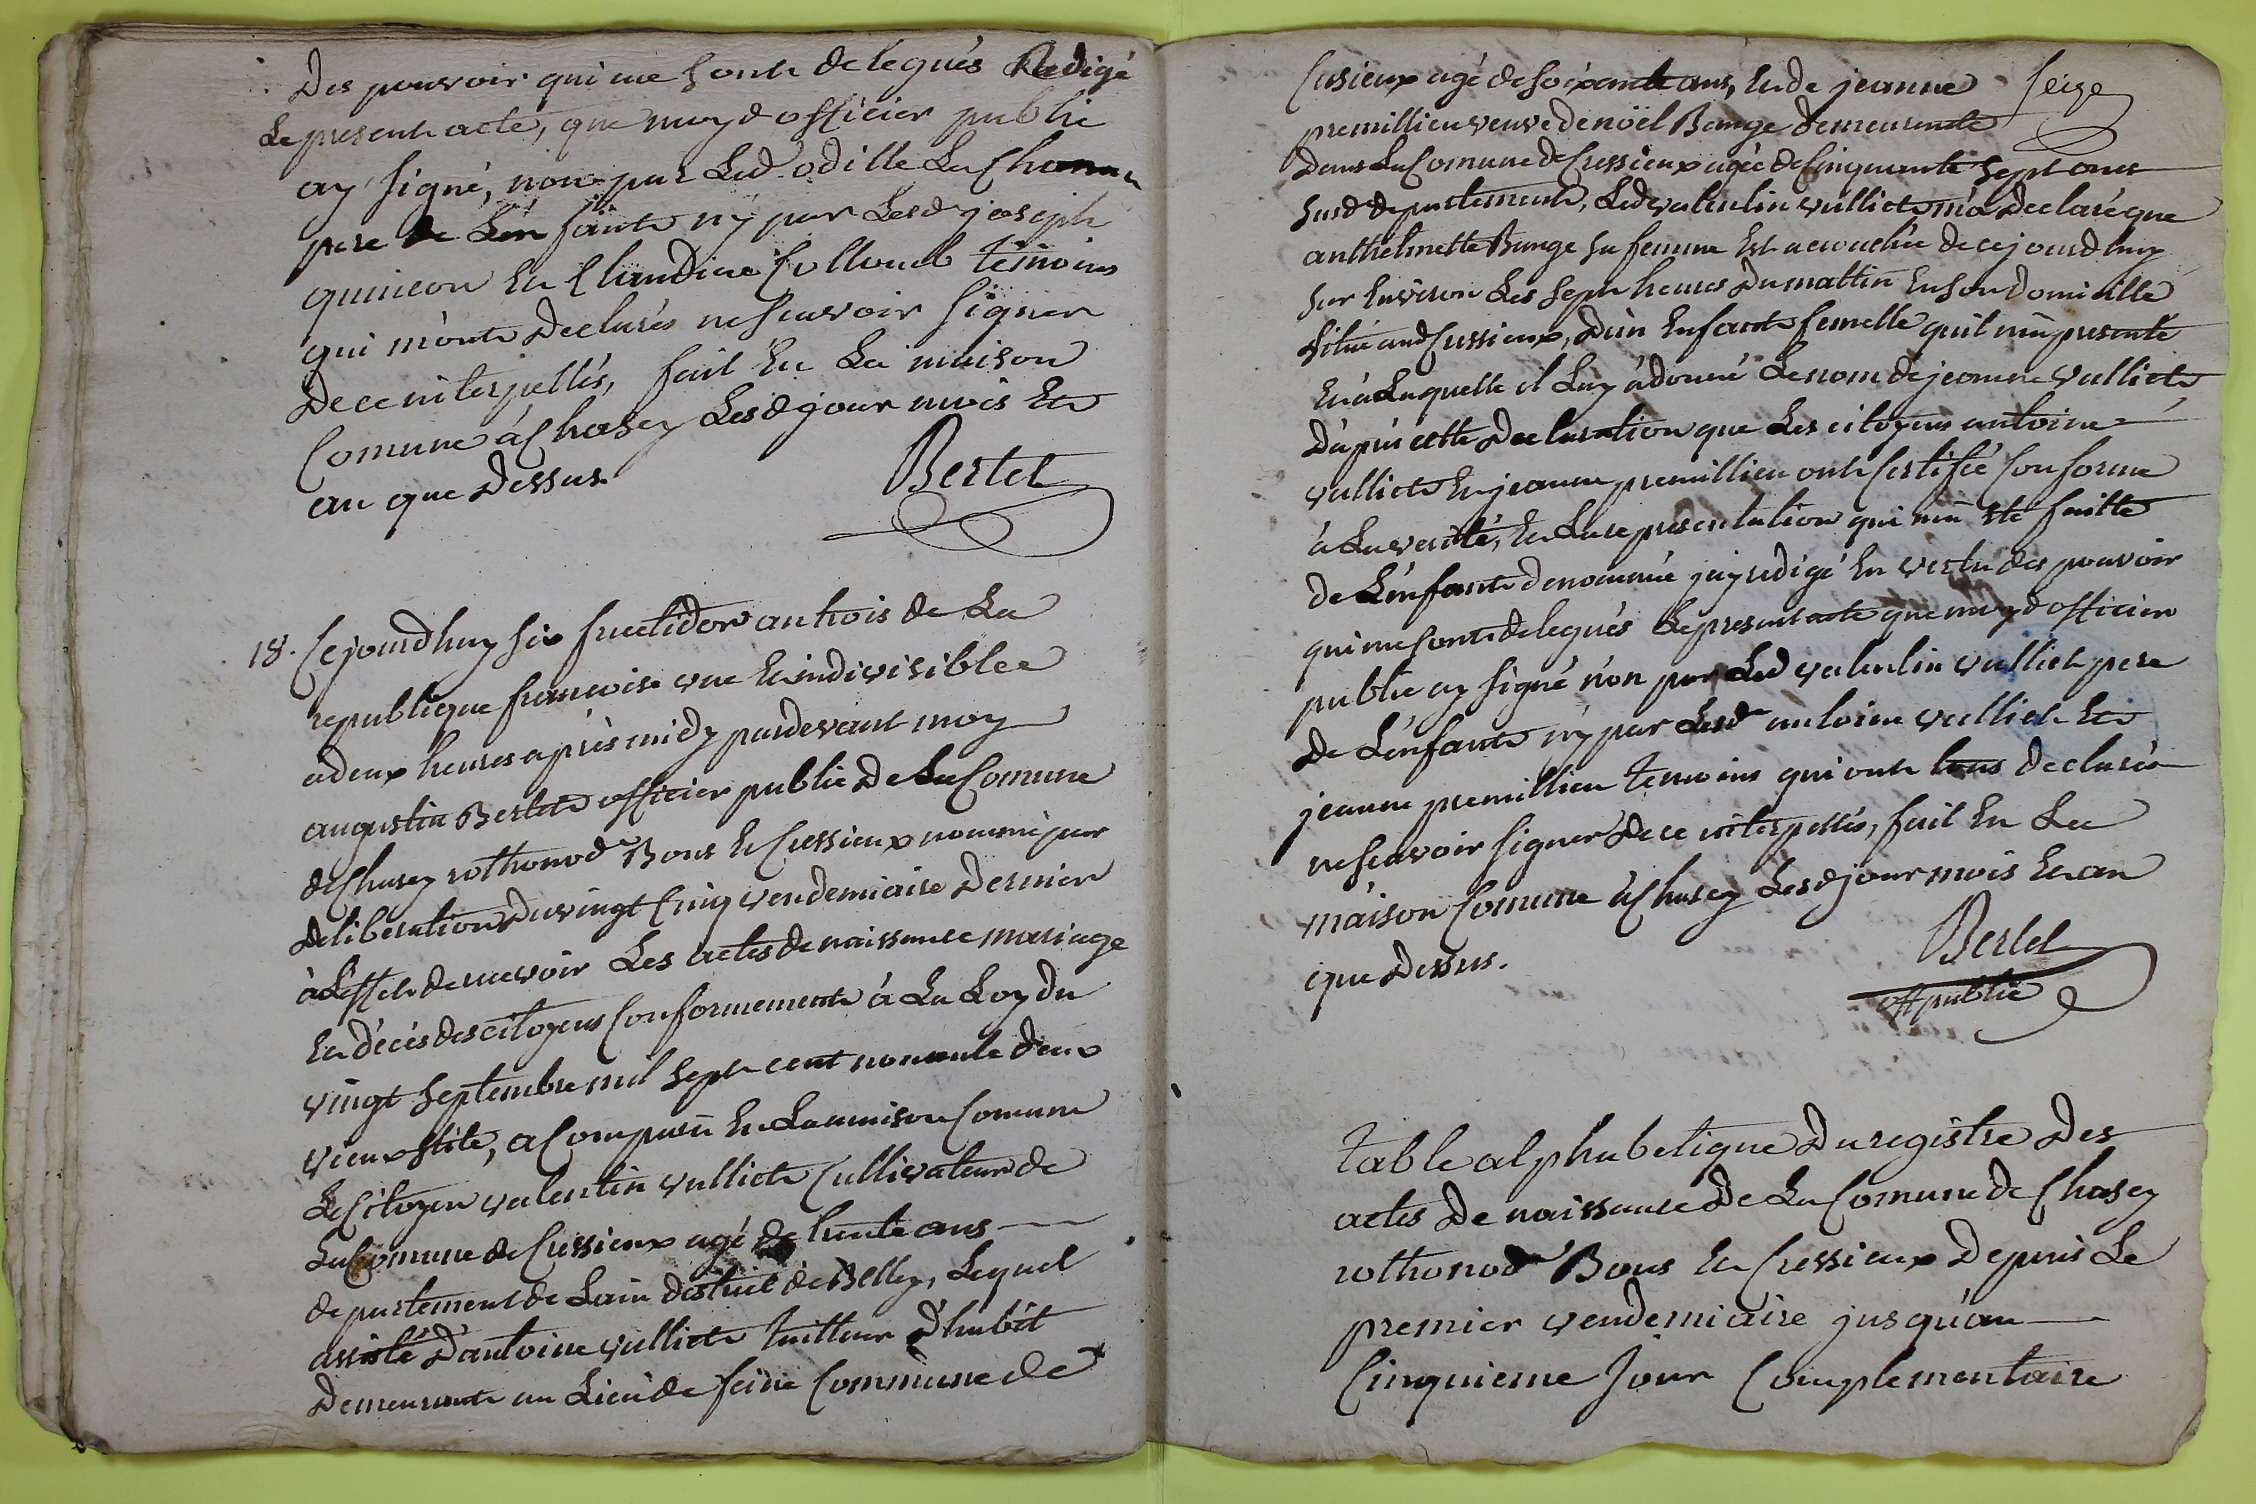 Des pouvoir qui me sont delegués Redigé
Le present acte, que moy d officier public
ay signé, non par Led odille La
pere de Lenfant ny par Lesd joseph
quinson Et Claudine Collomb temoins
qui m'ont Declarés ne scavoir signer
De ce interpellés, fait En La maison
Comune a Chasey Lesd jour mois Et
an que Dessus.
Bertet
18. Cejourdhuy six fructidor an trois de La
republique francoise une Et indivisiblee
a deux heures aprés midy pardevant moy
augustin Bertet officier public De La Comune
de Chasey rothonod Bons Et Cressieux nommé par
deliberation Du vingt Cinq vendemiaire Dernier
à L'effet de recevoir Les actes de naissance mariage
Et décés des citoyens Conformement à La Loy du
vingt septembre mil sept cent nonante deux
vieux stile, a Comparû En La maison Comune
Le Citoyen valentin vulliet Cultivateur de
La Comune de Cressieux agé de trente ans
departement de Lain district de Belley, Lequel
assisté D'antoine vulliet tailleur D'habit
Demeurant au Lieu de Comune de
seize
Cusieux agé de soixante ans, Et de jeanne
premillieu veuve de noël Bange Demeurante
Dans La Comune de Cressieux agée de Cinquante sept ans
susd departement, Led valentin vulliet m'a Declaré que
anthelmette Bange sa femme Est acouchée de cejourdhuy
sur Environ Les sept heures Du mattin En son Domicille
situé aud Cressieux, D'un Enfant femelle quil m'a presenté
Et à Laquelle il Luy à donné Le nom de jeanne vulliet
D'apré cette Declaration que Les citoyens antoine
vulliet Et jeanne premillieu ont Certifié Conforme
à La verité, Et La representation qui m'a eté faitte
de L'enfant denommé jay redigé En vertu des pouvoir
qui me sont delegués Le present acte que moyd officier
public ay signé non par Led valentin vulliet pere
de L'enfant ny par Lesd antoine vulliet Et
jeanne premillieu temoins qui ont tous Declarés
ne scavoir signer De ce interpellés, fait En La
maison Comune à Chasey Lesd jour mois Et an
que Dessus.
Bertet
off public
table alphabetique Du registre Des
actes De naissance De La Comune de Chasey
rothonod Bons Et Cressieux Depuis Le
premier vendemiaire jusqu'au
Cinquieme Jour Complementaire